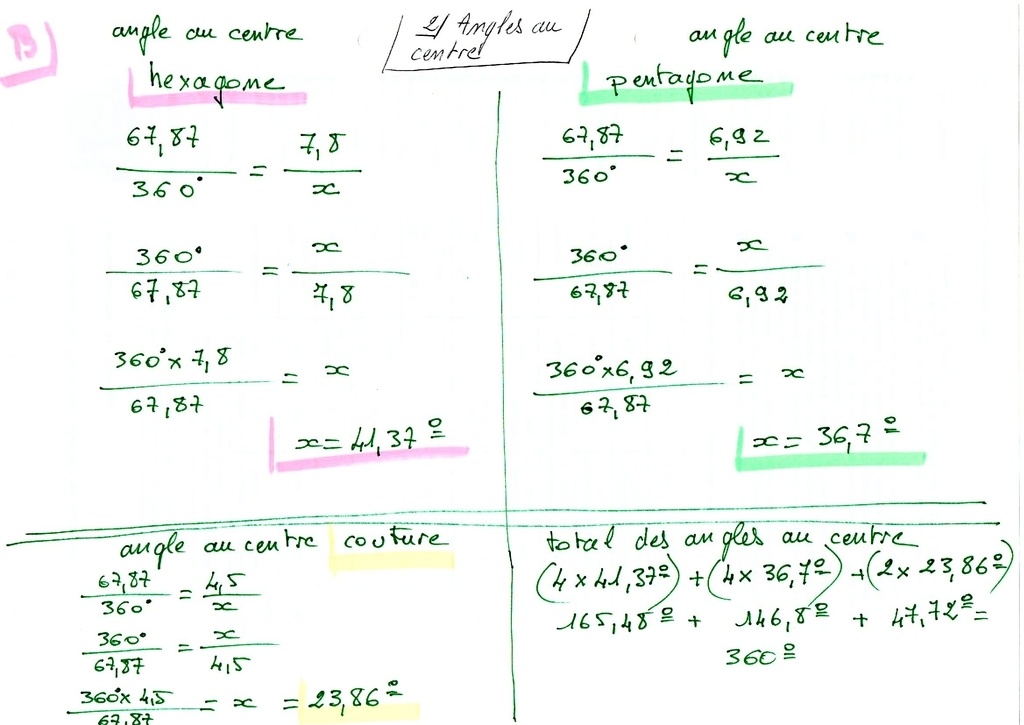 B
2/ Angles au
centre
angle au centre
hexagone
67,87/360° = 7,8/x
360°/67,87 = x/7,8
360° x 7,8/67,87 = x
x = 41,37º
angle au centre
pentagone
67,87/360° = 6,92/x
360°/67,87 = x/6,92
360° x 6,92/67,87 = x
x = 36,7º
angle au centre couture
67,87/360° = 4,5/x
360°/67,87 = x/4,5
360° x 4,5/67,87 = x = 23,86º
total des angles au centre
(4 x 41,37º) + (4 x 36,7º) + (2 x 23,86º)
165,48º + 146,8º + 47,72º =
360º